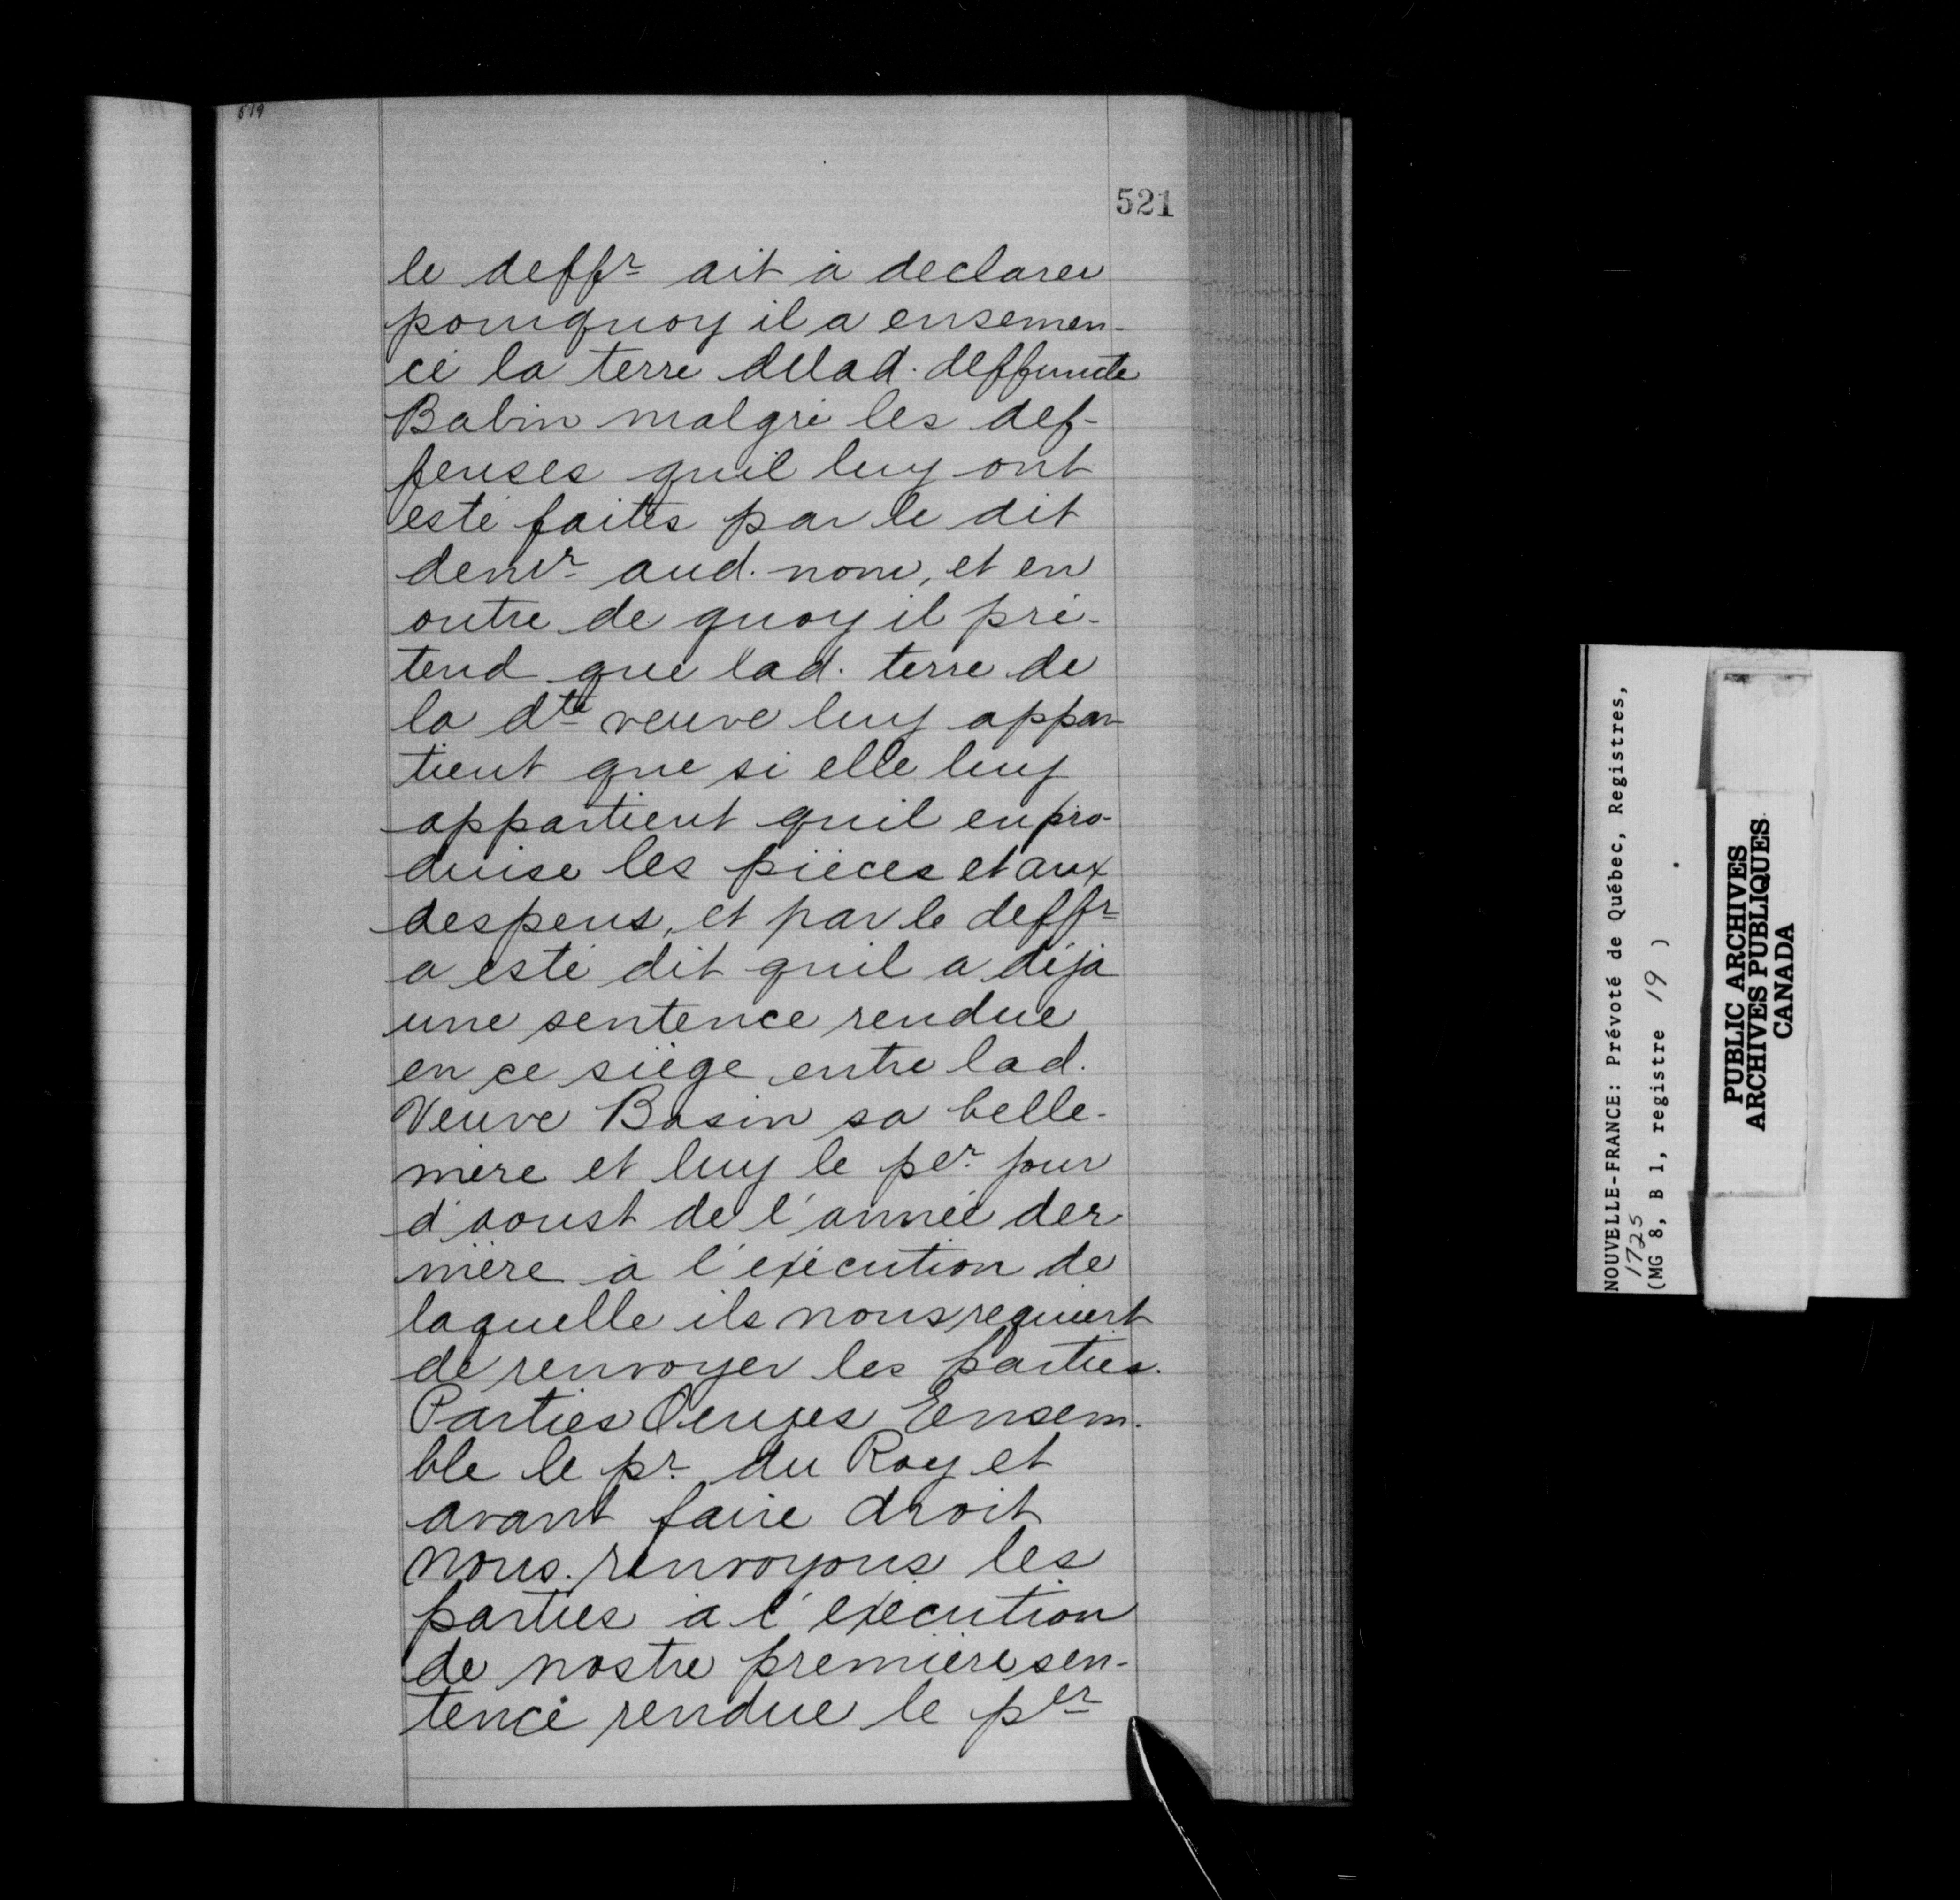 519
521
le deffr ait à declarer
pourquoy il a ensemen-
cé la terre delad. deffuncte
Babin malgré les def-
fenses quil luy ont
esté faites par le dit
demr aud. nom, et en
outre de quoy il pré-
tend que lad. terre de
la dte veuve luy appar-
tient que si elle luy
appartient quil en pro-
duise les pièces et aux
despens, et par le deffr
a esté dit quil a déja
une sentence rendue
en ce siège entre lad.
Veuve Basin sa belle-
mère et luy le per jour
d'aoust de l'année der-
nière à l'exécution de
laquelle ils nous requiert
de renvoyer les parties.
Parties Ouyes Ensem-
ble le pr du Roy et
avant faire droit
nous renvoyons les
parties à l'exécution
de nostre première sen-
tence rendue le per
NOUVELLE-FRANCE: Prévoté de Québec, Registres,
1725
(MG 8, B 1, registre 19 )
PUBLIC ARCHIVES
ARCHIVES PUBLIQUES
CANADA